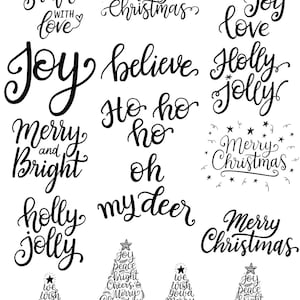 with
love
Christmas
Joy
love
Joy
believe
Holly
Jolly
Ho ho
ho
Merry
and
Bright
Merry
Christmas
oh
my deer
holly
Jolly
Merry
Christmas
Joy
peace
bright
Cheers
Merry
we
wish
we
wish
you a
Joy
peace